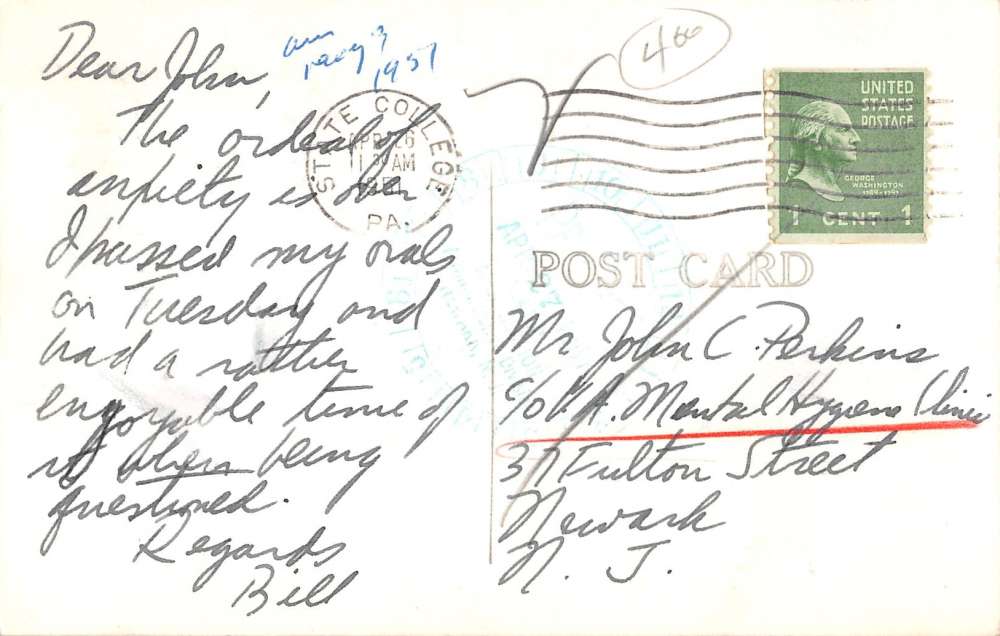 Dear John,
The ordeal of
anxiety is over
I passed my orals
on Tuesday and
had a rather
enjoyable time of
it when being
questioned.
Regards
Bill
1957
400
STATE COLLEGE
APR 26
AM
PA.
UNITED
STATES
POSTAGE
GEORGE
WASHINGTON
1789-1797
1 CENT 1
POST CARD
Mr John C. Perkins
c/o V.A. Mental Hygiene Clinic
37 Fulton Street
Newark
N. J.